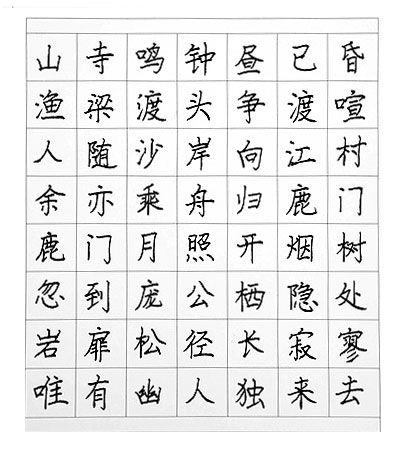 山寺鸣钟昼已昏
渔梁渡头争渡喧
人随沙岸向江村
余亦乘舟归鹿门
鹿门月照开烟树
忽到庞公栖隐处
岩扉松径长寂寥
唯有幽人独来去